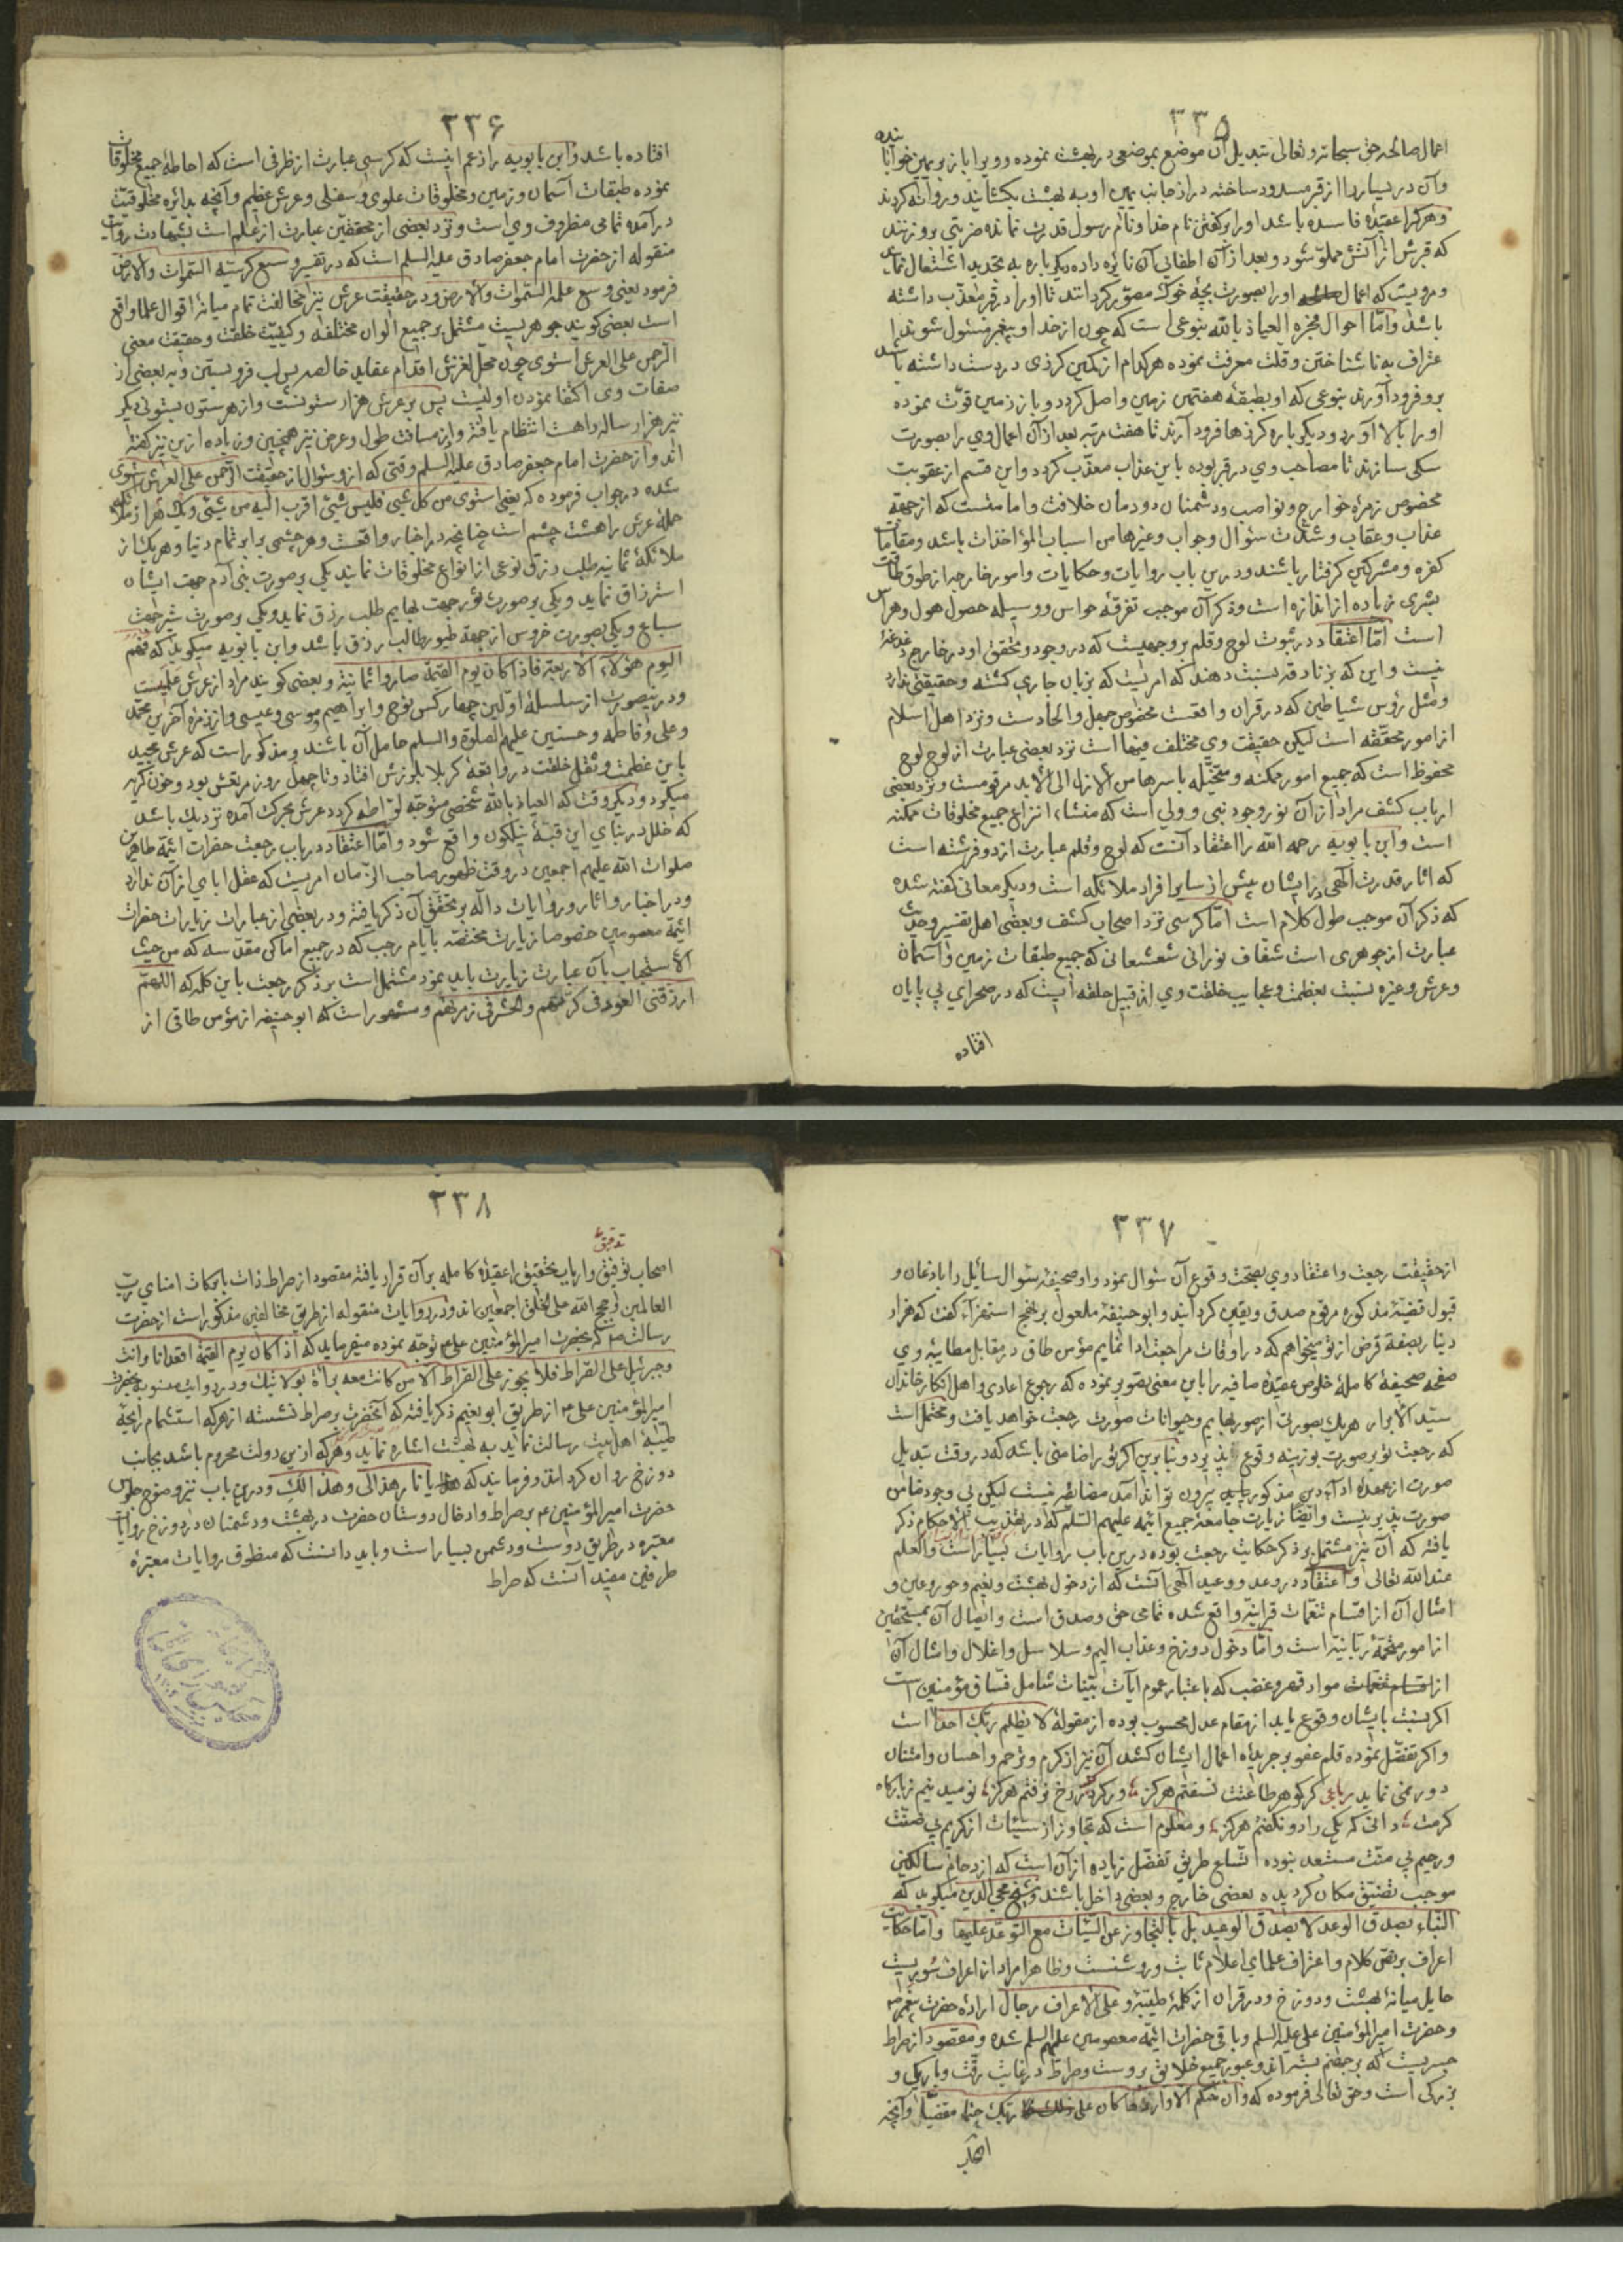 ۳۳۵
اعمال صالحه حق سبحانه و تعالی تبدیل آن موضع بموضعی در بهشت نموده و ویرا باز بریمین خوابانیده
وآن در یساررا از قبر مسدود ساخته در از جانب یمین او به بهشت بکشایند و روانه کردند
وهرکرا عقیده فاسده باشد او را برکفتن نام خدا و نام رسول قدرت نمانده ضربتی برو زنند
که قبرش از آتش مملوّ شود و بعد از آن اطفائی آن نایره داده دیکر باره به تجدید اشتعال نماید
ومرویست که اعمال او را بصورت بچه خوک مصوّر کردانند تا او را در قبر معذّب داشته
باشد وامّا احوال فجره العیاذ بالله بنوعی است که چون از خدا و پیغمبر مسئول شوند ا
عتراف به ناشناختن و قلت معرفت نموده هرکدام از ملکین کرزی در دست داشته باشند
برو فرود آورند بنوعی که او بطبقهٔ هفتمین زمین واصل کردد و باز زمین قوّت نموده
او را بالا آورد و دیکر باره کرزها فرود آرند تا هفت مرتبه بعد از آن اعمال وی را بصورت
سکی سازند تا مصاحب وی در قبر بوده باین عذاب معذّب کردد واین قسم از عقوبت
مخصوص زمرهٔ خوارج و نواصب و دشمنان دودمان خلافت و امامتست که از جههٔ
عذاب و عقاب و شدّت سئوال و جواب و غیرها من اسباب المؤاخذات باشد و مقامات
کفره و مشرکین کرفتار باشند و درین باب روایات و حکایات و امور خارجه از طوق طاقت
بشری زیاده از اندازه است و ذکر آن موجب تفرقهٔ حواس و وسیله حصول هول و هراس
است امّا اعتقاد در ثبوت لوح و قلم بر وجهیست که در وجود و تحقق او در خارج دغدغهٔ
نیست و این که بزنادقه نسبت دهند که امریست که بزبان جاری کشته و حقیقتی ندارد
ومثل رؤس شیاطین که در قران واقعست محض جهل و الحادست و نزد اهل اسلام
از امور محققه است لیکن حقیقت وی مختلف فیها است نزد بعضی عبارت از لوح لوح
محفوظ است که جمیع امور ممکنه و متخیّله باسرها من الازل الی الابد مرقومست و نزد بعضی
ارباب کشف مراد از آن نور وجود نبی و ولی است که منشاء انتزاع جمیع مخلوقات ممکنه
است و ابن بابویه رحمه الله را اعتقاد آنست که لوح و قلم عبارت از دو فرشته است
که اثار قدرت الهی در ایشان بیش از سایر افراد ملائکه است و دیکر معانی کفته شده
که ذکر آن موجب طول کلام است امّا کرسی نزد اصحاب کشف و بعضی اهل تفسیر و حدیث
عبارت از جوهری است شفاف نورانی شعشعانی که جمیع طبقات زمین و آسمان
وعرش و غیره نسبت بعظمت و عجایب خلقت وی از قبیل حلقه ایست که در صحرای بی پایان
افتاده
۳۳۶
افتاده باشد و ابن بابویه را زعم اینست که کرسی عبارت از ظرفی است که احاطهٔ جمیع مخلوقات
نموده طبقات آسمان و زمین و مخلوقات علوی و سفلی و عرش عظیم و آنچه بدائره مخلوقیّت
درآمده تمامی مظروف وی است و نزد بعضی از محققین عبارت از علم است بشهادت روایت
منقوله از حضرت امام جعفر صادق علیه السلم است که در تفسیر وسع کرسیّه السّموات والارض
فرمود یعنی وسع علمه السّموات والارض و در حقیقت عرش نیز مخالفت تمام میانهٔ اقوال علما واقع
است بعضی کویند جوهریست مشتمل بر جمیع الوان مختلفه و کیفیّت خلقت و حقیقت معنی
الرحمن علی العرش استوی چون محلّ لغزش اقدام عقاید خالصه بس لب فروبستن و به بعضی از
صفات وی اکتفا نمودن اولیست پس بر عرش هزار ستونست و از هر ستون بستونی دیکر
نیز هزار ساله راهست انتظام یافته و این مسافت طول و عرض نیز همچنین و زیاده ازین نیز کفته
اند و از حضرت امام جعفر صادق علیه السلم وقتی که از و سئوال از حقیقت الرّحمن علی العرش استوی
شده در جواب فرموده که یعنی استوی من کل شیئ فلیس شیئ اقرب الیه من شیئی و یک هزار از ملائکه
حملهٔ عرش را هشت چشم است چنانچه در اخبار واقعست و هر چشمی برابر تمام دنیا و هر یک از
ملائکهٔ ثمانیه طلب رزق نوعی از انواع مخلوقات نمایند یکی بر صورت بنی آدم جهت ایشان
استرزاق نماید و یکی بر صورت ثور جهت بهایم طلب رزق نماید و یکی بر صورت شیر جهت
سباع و یکی بصورت خروس از جههٔ طیور طالب رزق باشد و ابن بابویه میکوید که فهم
الیوم هؤلاء الاربعة فاذا کان یوم القیمة صاروا ثمانیة و بعضی کویند مراد از عرش علمیست
ودر ینصورت از سلسلهٔ اوّلین چهار کس نوح و ابراهیم و موسی و عیسی و از زمره آخرین محمّد
وعلی و فاطمه و حسنین علیهم الصلوة والسلم حامل آن باشند و مذکور است که عرش مجید
باین عظمت و ثقل خلقت در واقعهٔ کربلا بلرزش افتاد و تا چهل روز مرتعش بود و خون کریه
میکرد و دیکر وقت که العیاذ بالله شخصی متوجّه لواطه کردد عرش بحرکت آمده نزدیک باشد
که خلل در بنای این قبّهٔ نیلکون واقع شود و امّا اعتقاد در باب رجعت حضرات ائیمّه طاهرین
صلوات الله علیهم اجمعین در وقت ظهور صاحب الزّمان امریست که عقل ابای از آن ندارد
ودر اخبار و اثار و روایات دالّه بر تحقّق آن ذکر یافته و در بعضی از عبارات زیارات حضرات
ائیمّهٔ معصومین خصوصا زیارت مختصّه بایام رجب که در جمیع اماکن مقدّسه که من حیث
الاستحباب بآن عبارت زیارت باید نمود مشتمل است بر ذکر رجعت باین کلمه که اللهمّ
ارزقنی العود فی کرّتهم والحشر فی زمرتهم و مشهور است که ابو حنیفه از مؤمن طاق از
۳۳۷
از حقیقت رجعت و اعتقاد وی بصحّت وقوع آن سئوال نمود و او صحیفهٔ سئوال سائیل را باذعان و
قبول قضیّهٔ مذکوره مرقوم صدق و یقین کردانید و ابو حنیفهٔ ملعون بر نهج استهزاء کفت که هزار
دینار بصیغهٔ قرض از تو میخواهم که در اوقات مراجعت ادا نمایم مؤمن طاق در مقابل مطایبهٔ وی
صفحهٔ صحیفهٔ کاملهٔ خلوص عقیدهٔ صافیه را باین معنی تصویر نموده که رجوع اعادی و اهل انکار خاندان
سیّد الابرار هر یک بصورتی از صور بهایم و حیوانات صورت رجعت خواهد یافت و محتمل است
که رجعت تو بر صورت بوزینه وقوع پذیرد و بنابرین اکر تو را ضامنی باشد که در وقت تبدیل
صورت از عهدهٔ اداء دین مذکور بیرون تواند آمد مضائقه نیست لیکن بی وجود ضامن
صورت پذیر نیست وایضا زیارت جامعهٔ جمیع ائیمّه علیهم السّلم که در تهذیب الاحکام ذکر
یافته که آن نیز مشتمل بر ذکر حکایت رجعت بوده درین باب روایات بسیار است والعلم
عند الله تعالی و اعتقاد در وعد و وعید الهی آنست که از دخول بهشت و نعیم و حور و عین و
امثال آن از اقسام تنعّمات قرآنیّه واقع شده تمامی حق و صدق است و ایصال آن بمستحقین
از امور محتمّهٔ ربّانیّه است و امّا دخول دوزخ و عذاب الیم و سلاسل و اغلال و امثال آن
از مواد قهر و غضب که باعتبار عموم آیات بیّنات شامل فسّاق مؤمنین است
اکر نسبت بایشان وقوع یابد از مقام عدل محسوب بوده از مقولهٔ لا یظلم ربّک احداً است
واکر تفضّل نموده قلم عفو بر جریدهٔ اعمال ایشان کشد آن نیز از کرم و ترحم و احسان و امتنان
دور نمی نماید رباعی کر کوهر طاعتت نسفتم هرکز ورکرد ز رخ نرفتم هرکز نومید نیم ز بارکاه
کرمت دانی که یکی را دو نکفتم هرکز ومعلوم است که تجاوز از سیئات از کریم بی ضنّت
ورحیم بی منّت مستبعد نبوده اتّساع طریق تفضّل زیاده از آن است که ازدحام سالکین
موجب تضییق مکان کردیده بعضی خارج و بعضی داخل باشند و شیخ محی الدین میکوید که
الثناء بصدق الوعد لا بصدق الوعید بل بالتجاوز عن السّیّئات مع التوعّد علیها وامّا حکایت
اعراف بر نصّ کلام و اعتراف علمای اعلام ثابت و روشنست و ظاهرا مراد از اعراف سُوریست
حایل میانهٔ بهشت و دوزخ و در قران از کلمهٔ طیّبهٔ و علی الاعراف رجال ارادهٔ حضرت پیغمبر
وحضرت امیرالمؤمنین علی علیه السلم و باقی حضرات ائیمّه معصومین علیهم السلم شده و مقصود از صراط
جسریست که بر جهنّم بسته اند و عبور جمیع خلایق بروست و صراط در غایت رقّت و باریکی و
بزرکی است و حق تعالی فرموده که و ان منکم الا واردها کان علی ربّک حتما مقضیّا وآنچه
اصحاب
۳۳۸
تدقیق
اصحاب توفیق و ارباب تحقیق را عقیدهٔ کامله بر آن قرار یافته مقصود از صراط ذات بابرکات امنای ربّ
العالمین و حجج الله علی الخلق اجمعین اند و در روایات منقوله از طریق مخالفین مذکور است از حضرت
رسالت که بحضرت امیرالمؤمنین علی توجّه نموده میفرماید که اذا کان یوم القیمة اقعد انا وانت
وجبرئیل علی الصّراط فلا یجوز علی الصّراط الا من کانت معه برأة بولایتک و در روایت منسوبه بحضرت
امیرالمؤمنین علی از طریق ابو نعیم ذکر یافته که آنحضرت بر صراط نشسته از هرکه استشمام رایحهٔ
طیّبهٔ اهل بیت رسالت نماید به بهشت اشاره نماید و هرکه ازین دولت محروم باشد بجانب
دوزخ روان کرداند و فرمایند که یا نار هذا لی وهذا لک و درین باب نیز وضوح جلوس
حضرت امیرالمؤمنین بر صراط و ادخال دوستان حضرت در بهشت و دشمنان در دوزخ روایات
معتبره در طریق دوست و دشمن بسیار است و باید دانست که منطوق روایات معتبرهٔ
طرفین مفید آنست که صراط